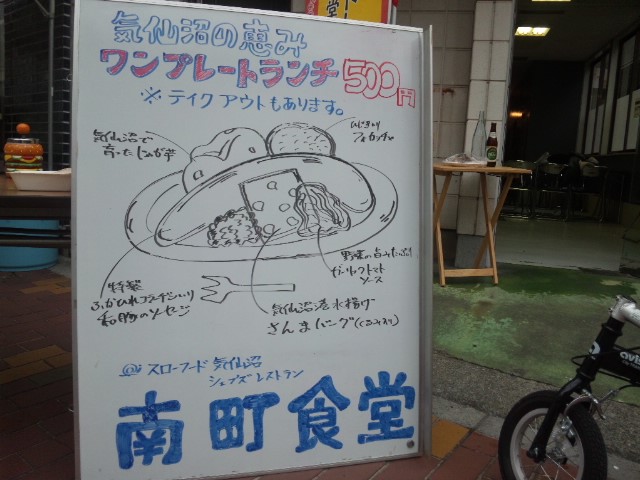 気仙沼の恵み
ワンプレートランチ 500円
※テイクアウトもあります。
気仙沼で
育ったじゃが芋
ひじき入り
フォカッチャ
野菜の旨みたっぷり
ガーリックトマト
ソース
特製
ふかひれコラーゲン入り
和豚のソーセージ
気仙沼港水揚げ
さんまバーグ(くるみ入り)
@スローフード気仙沼
シェフズレストラン
南町食堂